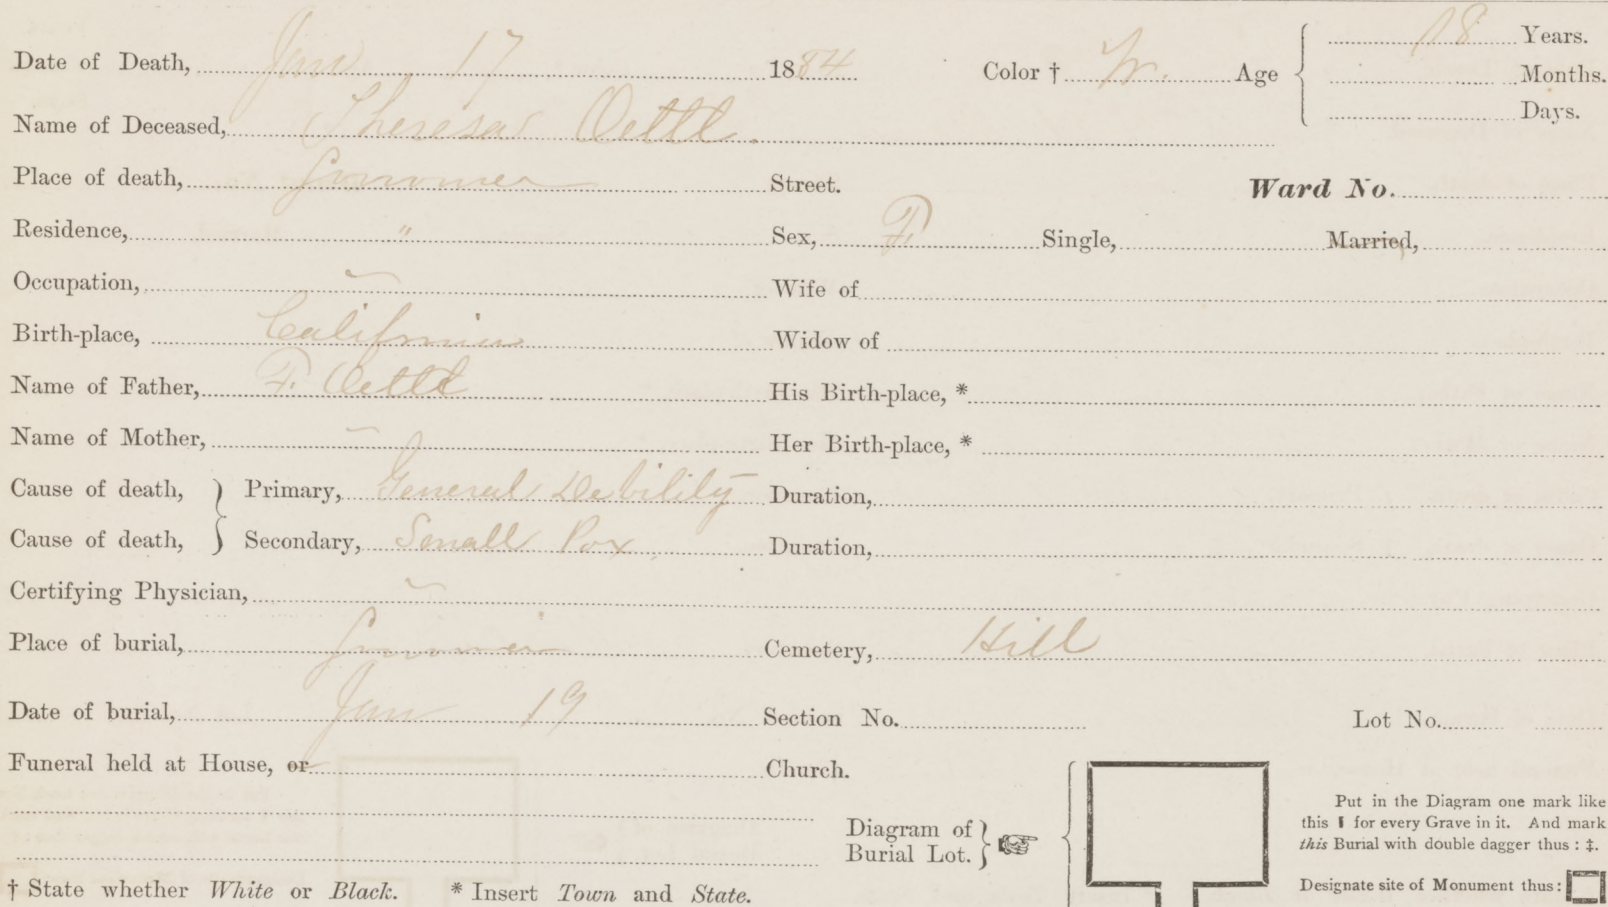 Date of Death, Jan 17 1884 Color † W. Age 18 Years.
Months.
Days.
Name of Deceased, Theresa Oettl.
Place of death, Sonoma Street. Ward No.
Residence, " Sex, F. Single, Married,
Occupation, Wife of
Birth-place, California Widow of
Name of Father, F. Oettl His Birth-place, *
Name of Mother, Her Birth-place, *
Cause of death, } Primary, General Debility Duration,
Cause of death, } Secondary, Small Pox. Duration,
Certifying Physician,
Place of burial, Sonoma Cemetery, Hill
Date of burial, Jan 19 Section No. Lot No.
Funeral held at House, or Church.
Diagram of
Burial Lot. }
Put in the Diagram one mark like
this ▮ for every Grave in it. And mark
this Burial with double dagger thus : ‡.
Designate site of Monument thus :
† State whether White or Black. * Insert Town and State.